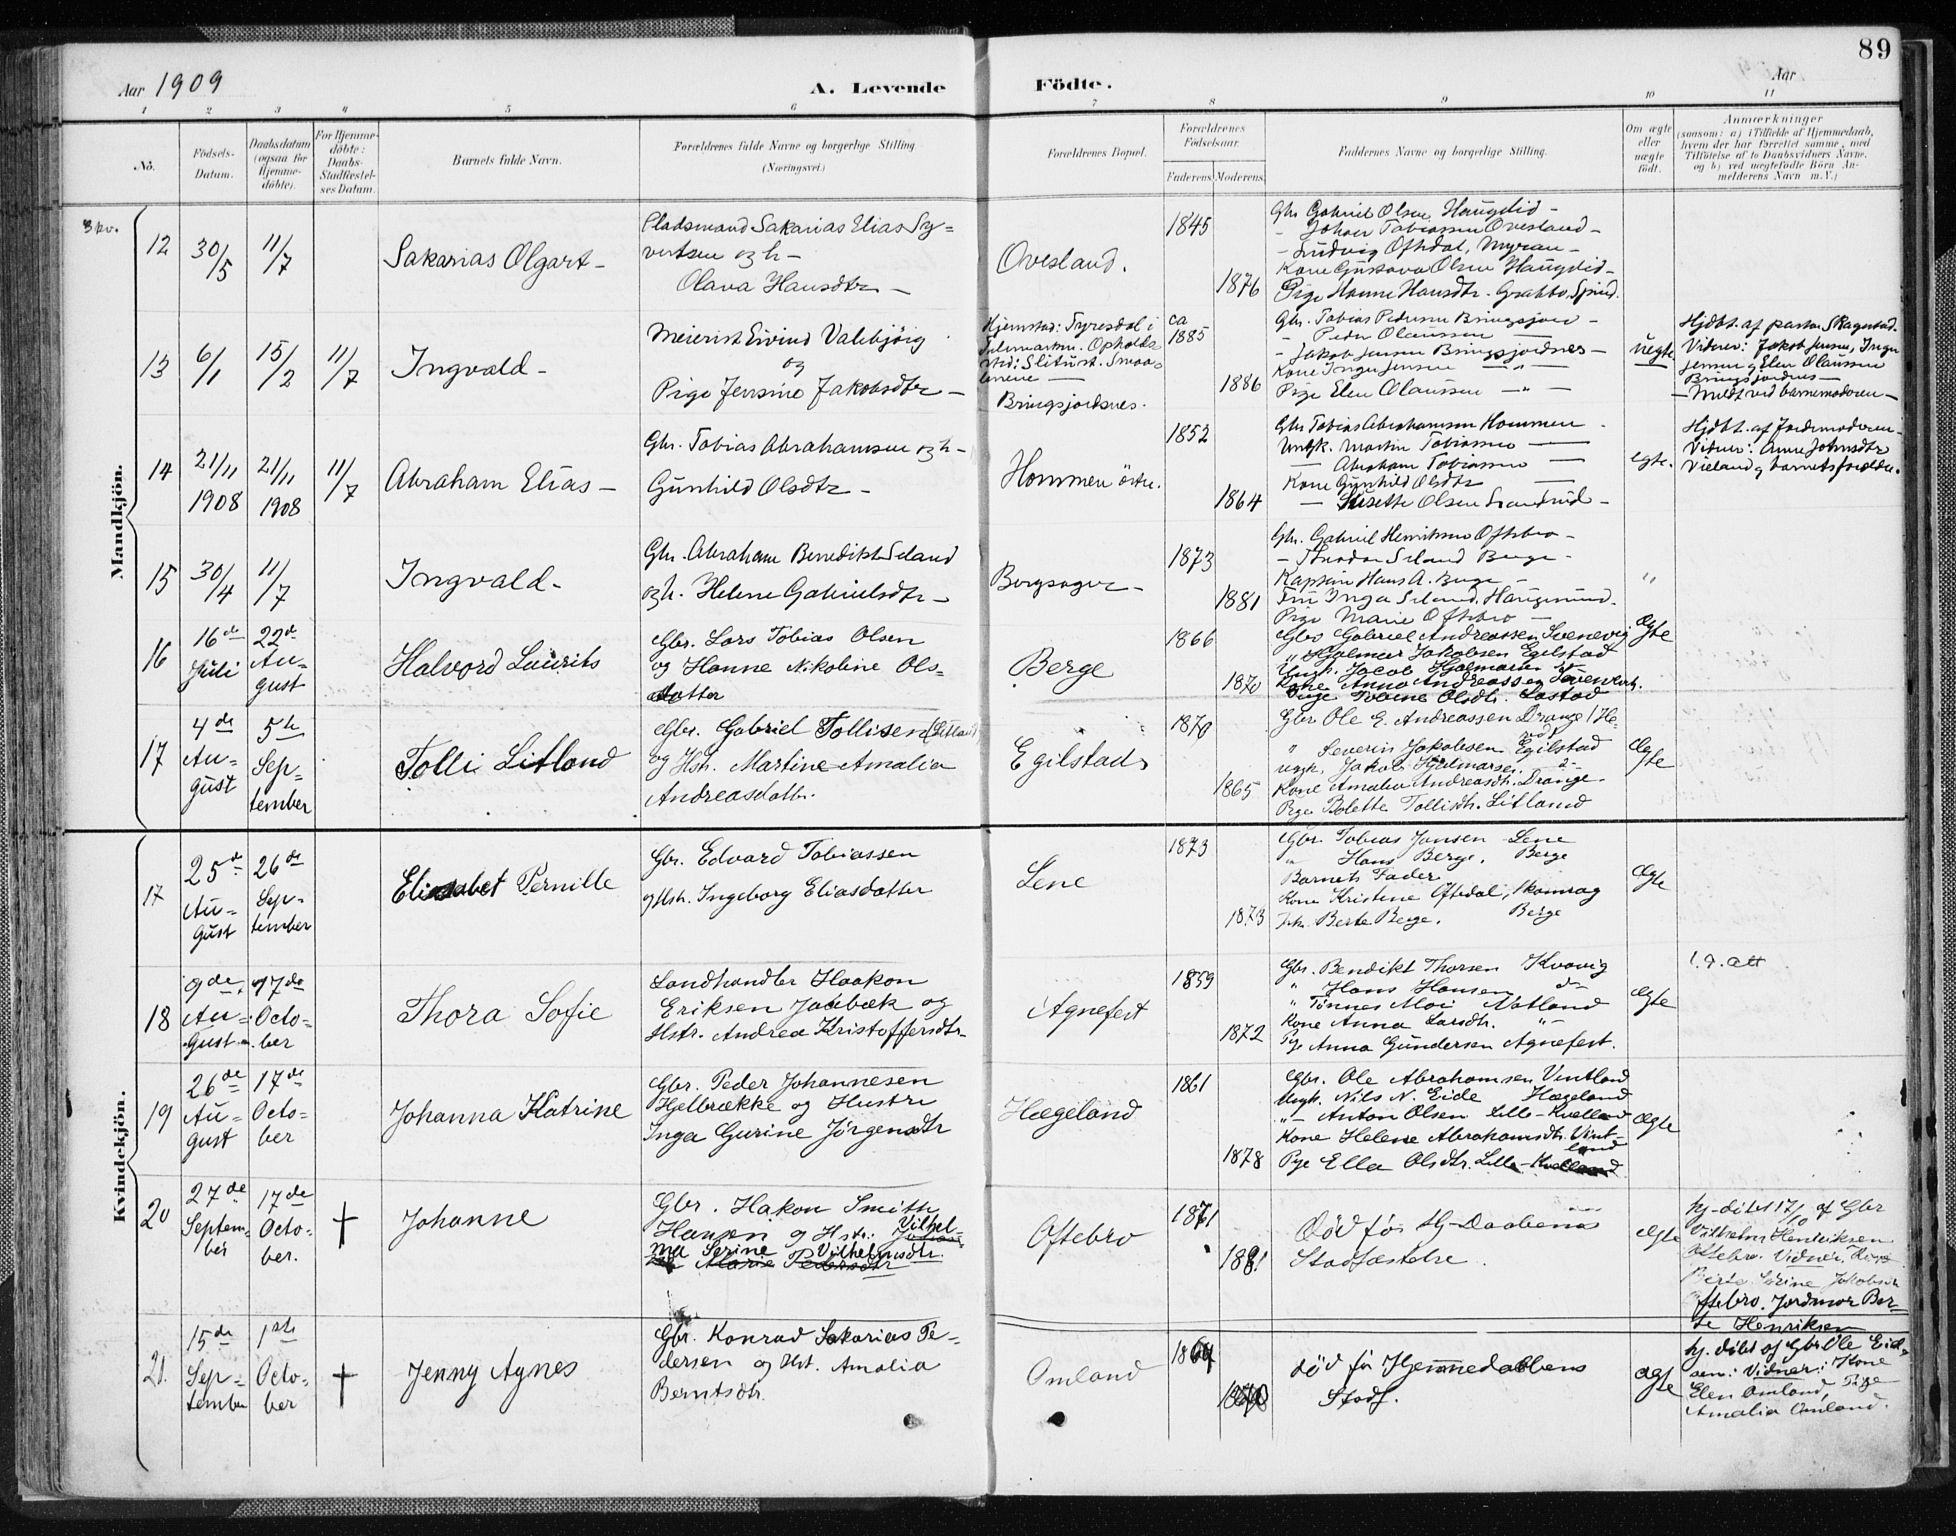 89
Aar 1909
A. Levende
Födte.
Aar
1 2 3 4 5 6 7 8 9 10 11
No.
Födsels-
Datum.
Daabsdatum
(ogsaa for
Hjemme-
döbte).
For Hjemme-
döbte:
Daabs-
Stadfæstel-
ses Datum.
Barnets fulde Navn.
Forældrenes fulde Navne og borgerlige Stilling.
(Næringsvei.)
Forældrenes Bopæl.
Forældrenes
Födselsaar.
Faderens. Moderens.
Faddernes Navne og borgerlige Stilling.
Om ægte
eller
uægte
födt.
Anmærkninger
(saasom: a) i Tilfælde af Hjemmedaab,
hvem der har forrettet samme, med
Tilföielse af to Daabsvidners Navne,
og b) ved uegtefödte Börn An-
melderens Navn m.V.)
Mandkjön.
3 kv.
12
30/5
11/7
Sakarias Olgart -
Pladsmand Sakarias Elias Sy-
vertsen og h -
Olava Hansdtr -
Ovesland.
1845
1876
Gbr Gabriel Olsen Haugdid -
- Johan Tobiassen Ovesland -
- Ludvig Oftedal, Myran -
Kone Gustava Olsen Haugdid -
Pige Hanne Hansdtr.
13
6/1
15/2
11/7
Ingvald -
Meierist Eivind Valebjörg
og
Pige Jensine Jakobsdtr -
Hjemstad: Tyresdal i
Telemarken. Opholds
sted:
Bringsjordsnes.
ca
1885
1886
Gbr. Tobias Pedersen Bringsjord -
- Peder Olaussen -
- Jakob Jensen Bringsjordnes -
Kone Inger Jensen - " -
Pige Elen Olaussen - " -
uegte
Hjdbt. af pastor Skagestad.
Vidner: Jakob Jensen, Inger
Jensen og Elen Olaussen
Bringsjordnes -
- Meldt ved barnemoderen -
14
21/11
1908
21/11
1908
11/7
Abraham Elias -
Gbr. Tobias Abrahamsen og h -
Gunhild Olsdtr -
Hommen östre.
1852
1864
Gbr Tobias Abrahamsen Hommen
Ungk. Martin Tobiassen -
- Abraham Tobiassen -
Kone Gunhild Olsdtr -
- Lisette Olsen
egte.
Hjdbt. af Jordemoderen -
Vidner: Anne Johnsdtr
Vieland og barnets forældre.
15
30/4
11/7
Ingvald -
Gbr. Abraham Benedikt Seland
og h. Helene Gabrielsdtr -
Bergsager -
1873
1881
Gbr. Gabriel Henriksen Oftebro -
- Theodor Seland Berge -
Kaptein Hans A. Berge -
Fru Inga Seland, Haugesund.
Pige Marie Oftebro -
"
16
16de
Juli
22de
Au-
gust
Halvord Laurits
Gbr. Lars Tobias Olsen
og Hanne Nikoline Ols-
datter
Berge
1866
1870
Gbr Gabriel Andreassen Svenevig
" Hjalmer Jakobsen Egilstad
Ungk. Jacob Hjalmarsen
Kone Anna Andreassen
Pige Tobine Olsdtr.
Ægte
17
4de
Au-
gust
5te
Sep-
tember
Tolli Litland
Gbr. Gabriel Tollisen (Litland)
og Hstr. Martine Amalia
Andreasdatter.
Egilstad
1870
1865
Gbr Ole E. Andreassen Drange (He-
red)
" Severin Jakobsen Egilstad
Ungk. Jakob Hjelmarsen
Kone Amalia Andreasdtr. Drange.
Pige Bolette Tollisdtr. Litland
Ægte
Kvindekjön.
17
25de
Au-
gust
26de
Sep-
tember
Elisabet Pernille
Gbr. Edvard Tobiassen
og Hstr. Ingeborg Eliasdatter
Lene
1873
1873
Gbr. Tobias Jansen Lene
" Hans Berge, Berge
Barnets Fader
Kone Kristine Oftedal,
Berte Berge, Berge
Ægte
18
9de
Au-
gust
17de
Octo-
ber
Thora Sofie
Landhandler Haakon
Eriksen Jaabæk og
Hstr. Andrea Kristoffersdtr.
Agnefest
1859
1872
Gbr. Bendikt Thorsen Kvavig
" Hans Hansen do
" Tönnes Moi Natland
Kone Anna Larsdtr. " -
Pige Anna Gundersen Agnefest.
Ægte
19
26de
Au-
gust
17de
Octo-
ber
Johanna Katrine
Gbr. Peder Johannesen
Hjelbrække og Hustru
Inga Gurine Jörgensdtr
Hægeland
1861
1878
Gbr. Ole Abrahamsen Vintland
Ungk. Nils N. Eide Hægeland
" - Anton Olsen Lille-Kvelland
Kone Helene Abrahamsdtr. Vint-
land
Pige Ella Olsdtr. Lille-Kvelland
Ægte
20
27de
Septem-
ber
17de
Octo-
ber.
†
Johanne
Gbr. Hakon Smith
Hansen og Hstr. Vilhel-
ma Serine Vilhelmsdtr.
Marie Pedersdtr
Oftebro
1871
1881
Död för Hj-Daabens
Stadfæstelse.
Ægte
hj-döbt 17/10 af Gbr
Vilhelm Henriksen
Oftebro. Vidner: Kone
Berte Serine Jakobsen
Oftebro. Jordmor Ber-
te Henriksen
21.
15de
Sep-
tember
1ste
Octo-
ber
†
Jenny Agnes
Gbr. Konrad Sakarias Pe-
dersen og Hst. Amalia
Berntsdtr.
Omland
Död för Hjemmedaabens
Stadf.
Ægte
hj. döbt af Gbr Ole Eid-
sen: Vidner: Kone
Elen Omland, Pige
Amalia Omland.